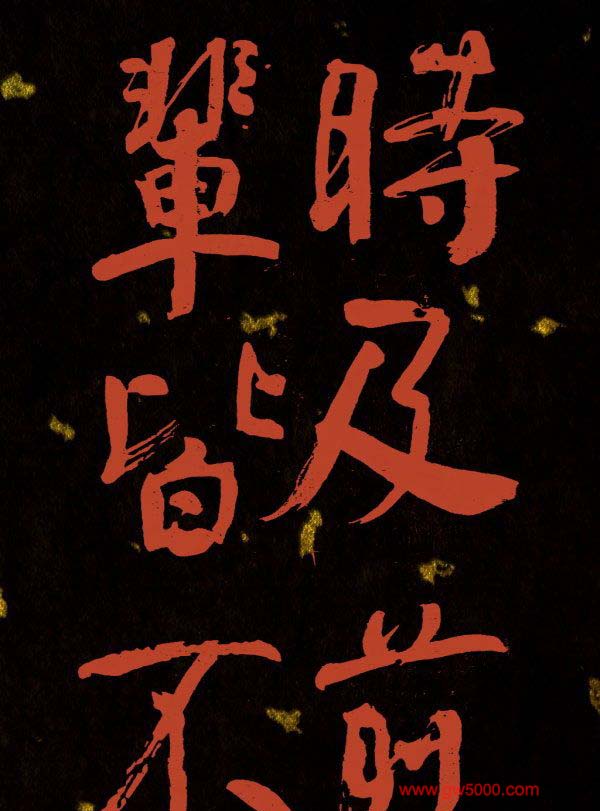 時及前
輩皆不
www.gw5000.com